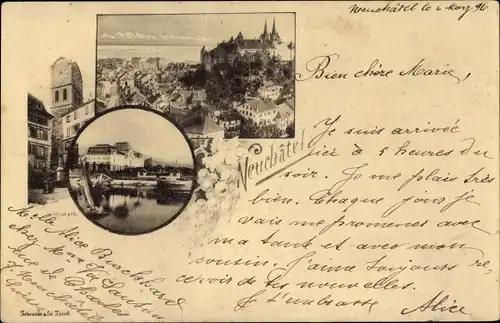 Neuchâtel le 6 Mars 96
Bien chère Marie,
Je suis arrivée
ici à 5 heures du
soir. Je me plais très
bien. Chaque jour je
vais me promener avec
ma tante et avec mon
cousin. J'aime toujours re
cevoir de tes nouvelles.
Je t'embrasse
Alice
Neuchâtel
Alice Burckhard
chez
Rue de
Neuchâtel